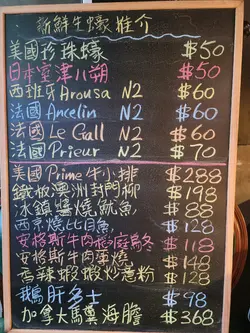 新鮮生蠔推介
美國珍珠蠔 $50
日本室津八朔 $50
西班牙Arousa N2 $60
法國Ancelin N2 $60
法國Le Gall N2 $60
法國Prieur N2 $70
美國Prime牛小排 $288
鐵板澳洲封門柳 $198
冰鎮醬燒魷魚 $88
西京燒比目魚 $128
安格斯牛肉 烏冬 $118
安格斯牛肉 燒 $148
香辣蝦蝦炒意粉 $128
鵝肝多士 $98
加拿大馬糞海膽 $368